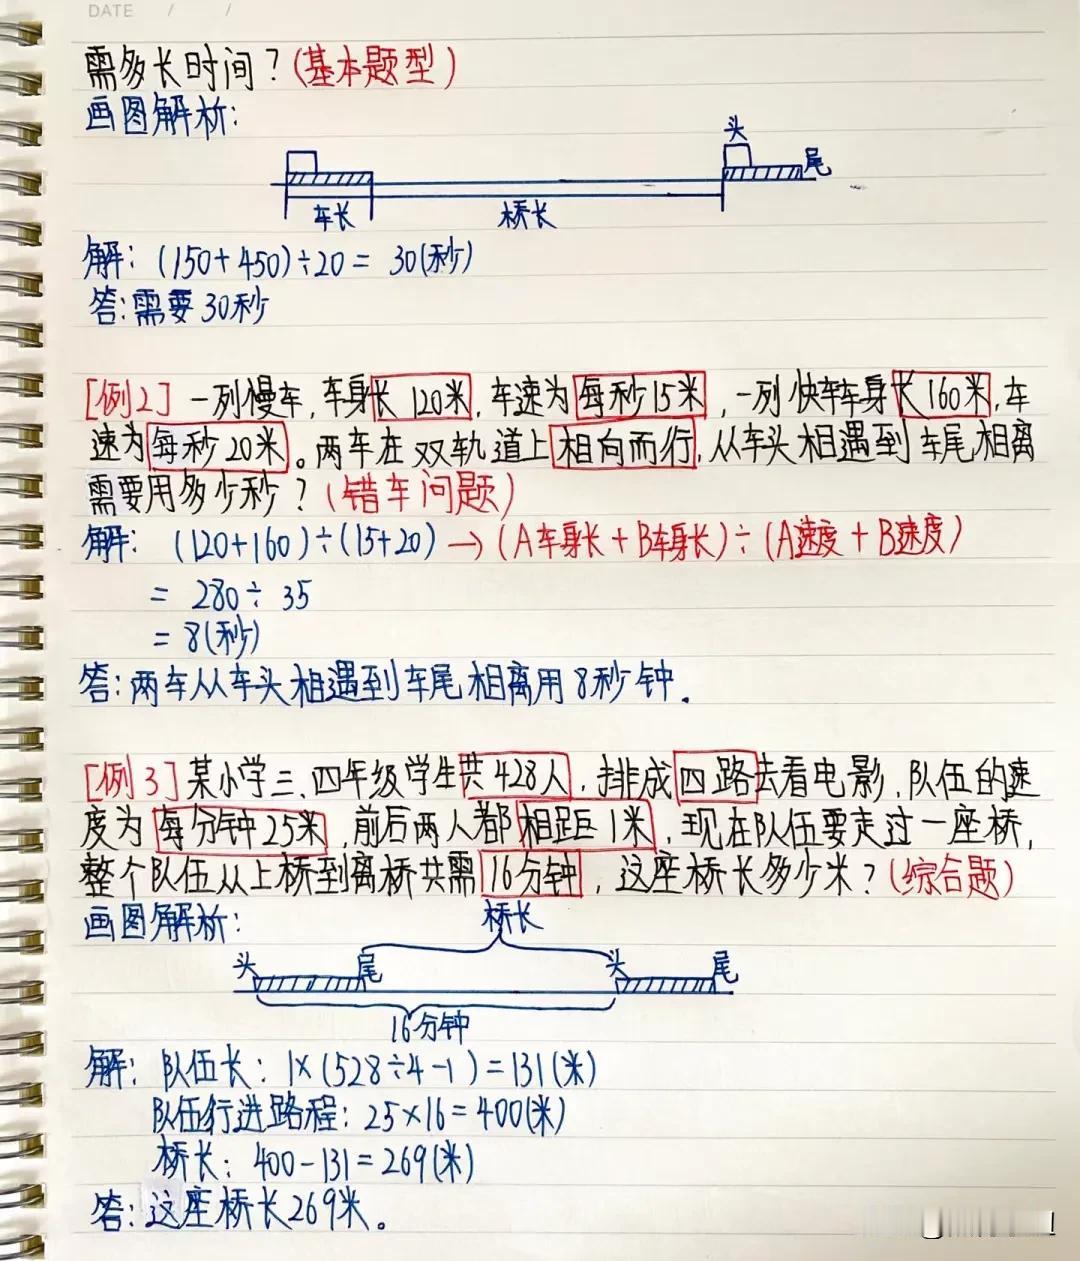 DATE / /
需多长时间？(基本题型)
画图解析：
头
尾
车长
桥长
解：(150+450)÷20= 30(秒)
答：需要30秒
[例2] 一列慢车，车身长120米，车速为每秒15米，一列快车车身长160米，车
速为每秒20米。两车在双轨道上相向而行，从车头相遇到车尾相离
需要用多少秒？(错车问题)
解：(120+160)÷(15+20)→(A车身长+B车身长)÷(A速度+B速度)
= 280÷35
= 8(秒)
答：两车从车头相遇到车尾相离用8秒钟.
[例3]某小学三、四年级学生共428人，排成四路去看电影，队伍的速
度为每分钟25米，前后两人都相距1米，现在队伍要走过一座桥，
整个队伍从上桥到离桥共需16分钟，这座桥长多少米？(综合题)
画图解析：
桥长
头 尾 头 尾
16分钟
解：队伍长：1×(528÷4-1)=131(米)
队伍行进路程：25×16=400(米)
桥长：400-131=269(米)
答：这座桥长269米。